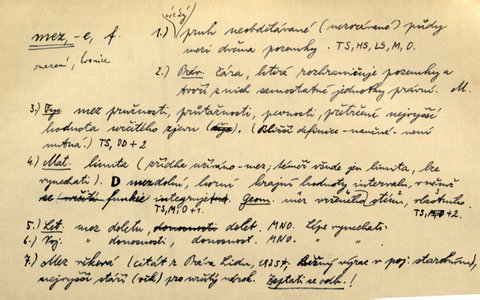 mez, -e, f.
omezení, hranice
1.) úzký pruh neobdělávané (nezorávané) půdy
mezi dvěma pozemky. TS, HS, LS, M, O.
2.) Práv. čára, která rozhraničuje pozemky a
tvoří z nich samostatné jednotky právní. M.
3.) Fys. mez pružnosti, průtažnosti, pevnosti, přetržení nejvyšší
hodnota určitého zjevu. (Bližší definice - naučné - není
nutná.) TS, DD + 2
4.) Mat. limita (zřídka užíváno - mez; téměř všude jen limita, lze
vynechati). D mez dolní, horní krajní hodnoty intervalu, v němž
se určitá funkce integruje. Geom. mez vrženého stínu, vlastního.
TS, M, O + 1. TS, M, O + 2.
5.) Let. mez doletu, donosnosti dolet. MNO. Lépe vynechati.
6.) Voj. " donosnosti, donosnost. MNO. " "
7.) Mez věková (citát z Práva Lidu, 1935?, Běžný výraz v poj. starobním),
nejvyšší stáří (věk) pro určitý nárok. Zeptati se odb.!